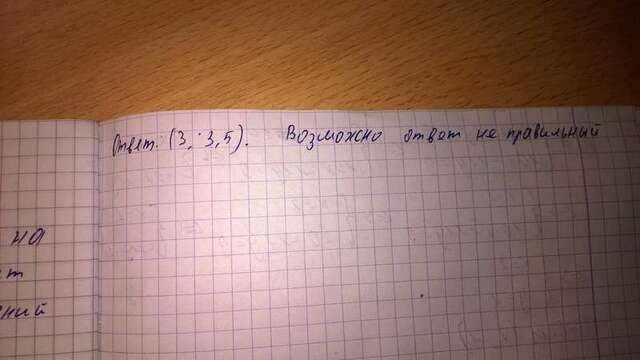 Ответ: (3, 3,5). Возможно ответ не правильный
на
ет
ний